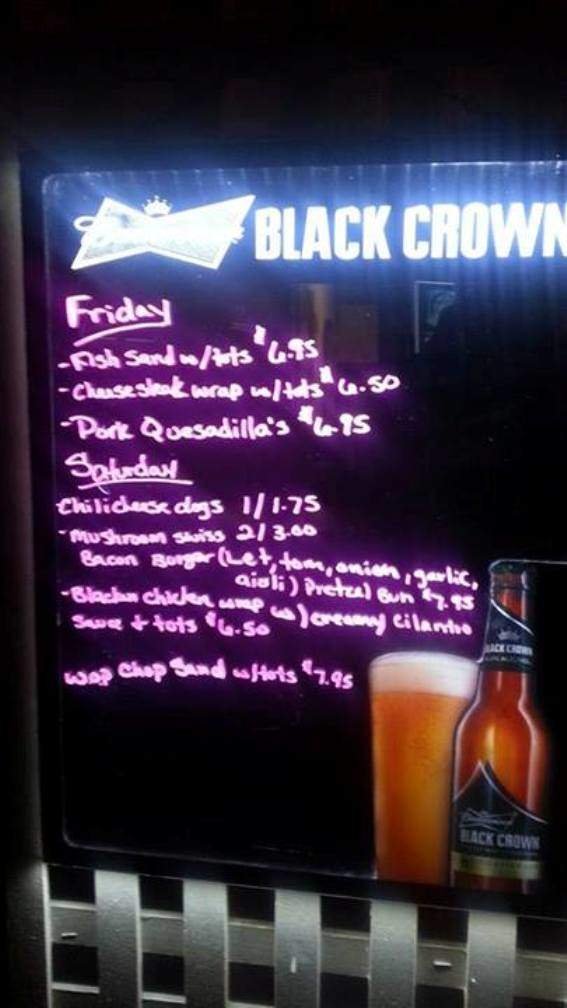 Budweiser BLACK CROWN
Friday
- Fish Sand w/tots $6.95
- Cheesesteak wrap w/tots $6.50
- Pork Quesadilla's $6.95
Saturday
- Chilicheese dogs 1/1.75
2/3.00
- Mushroom swiss
Bacon Burger (Let, tom, onion, garlic,
aioli) Pretzel Bun $7.95
- chicken wrap w/ creamy cilantro
Sauce + tots $6.50
Chop Sand w/tots $7.95
BLACK CROWN
BLACK CROWN